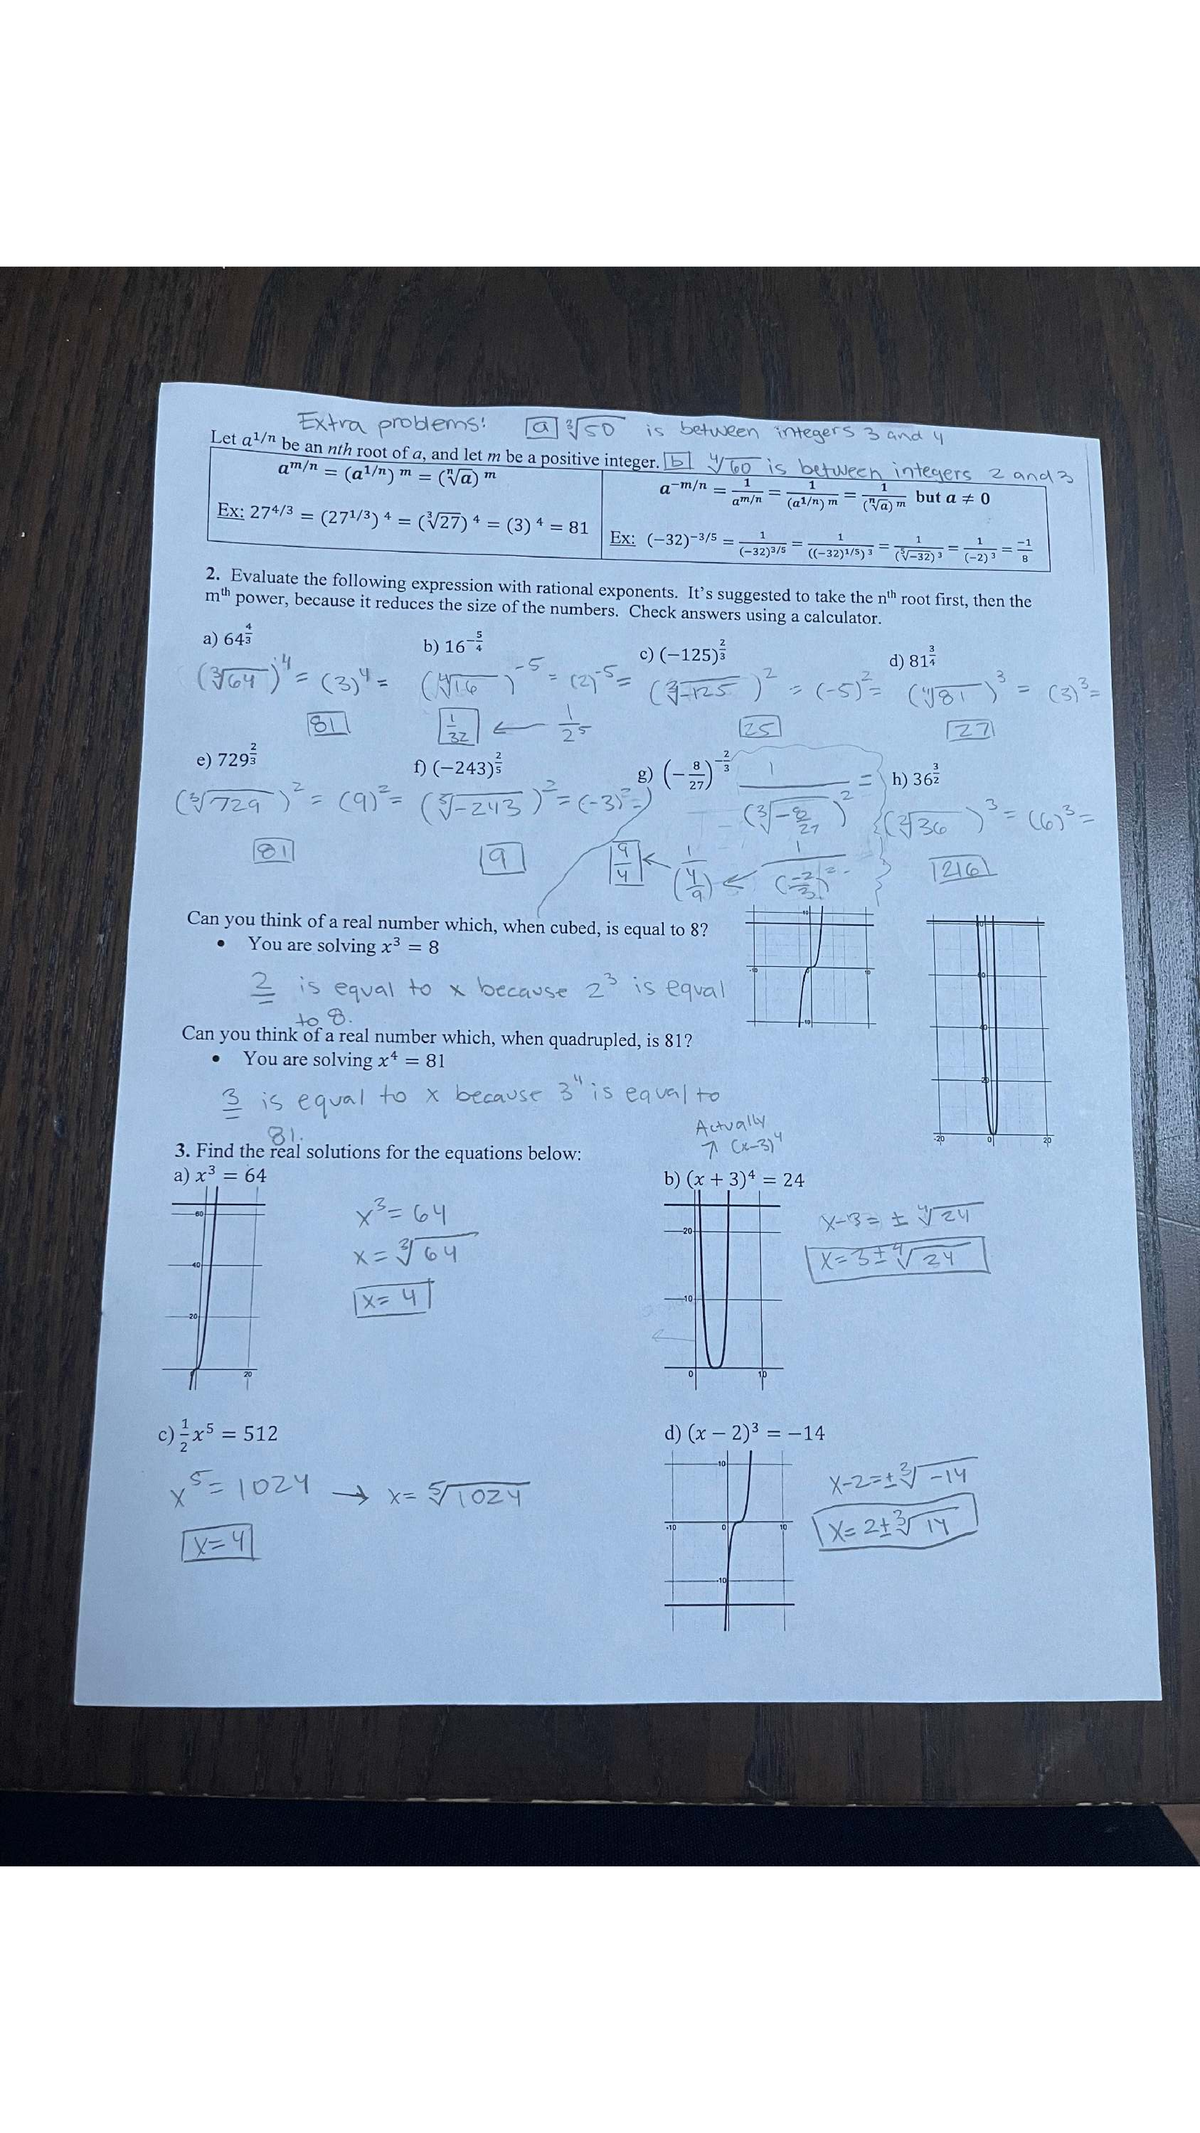 Extra problems: a ∛50 is between integers 3 and 4
Let a^1/n be an nth root of a, and let m be a positive integer. b ∜60 is between integers 2 and 3
a^m/n = (a^1/n)^m = (ⁿ√a)^m
a^−m/n = 1/a^m/n = 1/(a^1/n)^m = 1/(ⁿ√a)^m but a ≠ 0
Ex: 27^4/3 = (27^1/3)^4 = (∛27)^4 = (3)^4 = 81
Ex: (−32)^−3/5 = 1/(−32)^3/5 = 1/((−32)^1/5)^3 = 1/(⁵√−32)^3 = 1/(−2)^3 = −1/8
2. Evaluate the following expression with rational exponents. It's suggested to take the nth root first, then the
mth power, because it reduces the size of the numbers. Check answers using a calculator.
a) 64^4/3
b) 16^−5/4
c) (−125)^2/3
d) 81^3/4
(∛64)^4 = (3)^4 =
(∜16)^-5 = (2)^-5 =
(∛-125)^2 = (-5)^2 =
(∜81)^3 = (3)^3 =
81
1/32 ← 1/2^5
25
27
e) 729^2/3
f) (−243)^2/5
g) (−8/27)^−2/3
1/(∛-8/27)^2 =
h) 36^3/2
(∛729)^2 = (9)^2 =
(⁵√-243)^2 = (-3)^2 =
(²√36)^3 = (6)^3 =
81
9
9/4 ← 1/(4/9) ← 1/(-2/3)^2
216
Can you think of a real number which, when cubed, is equal to 8?
• You are solving x^3 = 8
2 is equal to x because 2^3 is equal
to 8.
10
-10
10
-10
20
-20
0
20
Can you think of a real number which, when quadrupled, is 81?
• You are solving x^4 = 81
3 is equal to x because 3^4 is equal to
81.
Actually
↗ (x-3)^4
3. Find the real solutions for the equations below:
a) x^3 = 64
60
40
20
20
x^3 = 64
x = ∛64
x = 4
b) (x + 3)^4 = 24
20
10
0
10
x-3 = ± ∜24
x = 3 ± ∜24
c) 1/2 x^5 = 512
x^5 = 1024 → x = ⁵√1024
x = 4
d) (x − 2)^3 = −14
10
-10
0
10
-10
x-2 = ± ∛-14
x = 2 ± ∛14